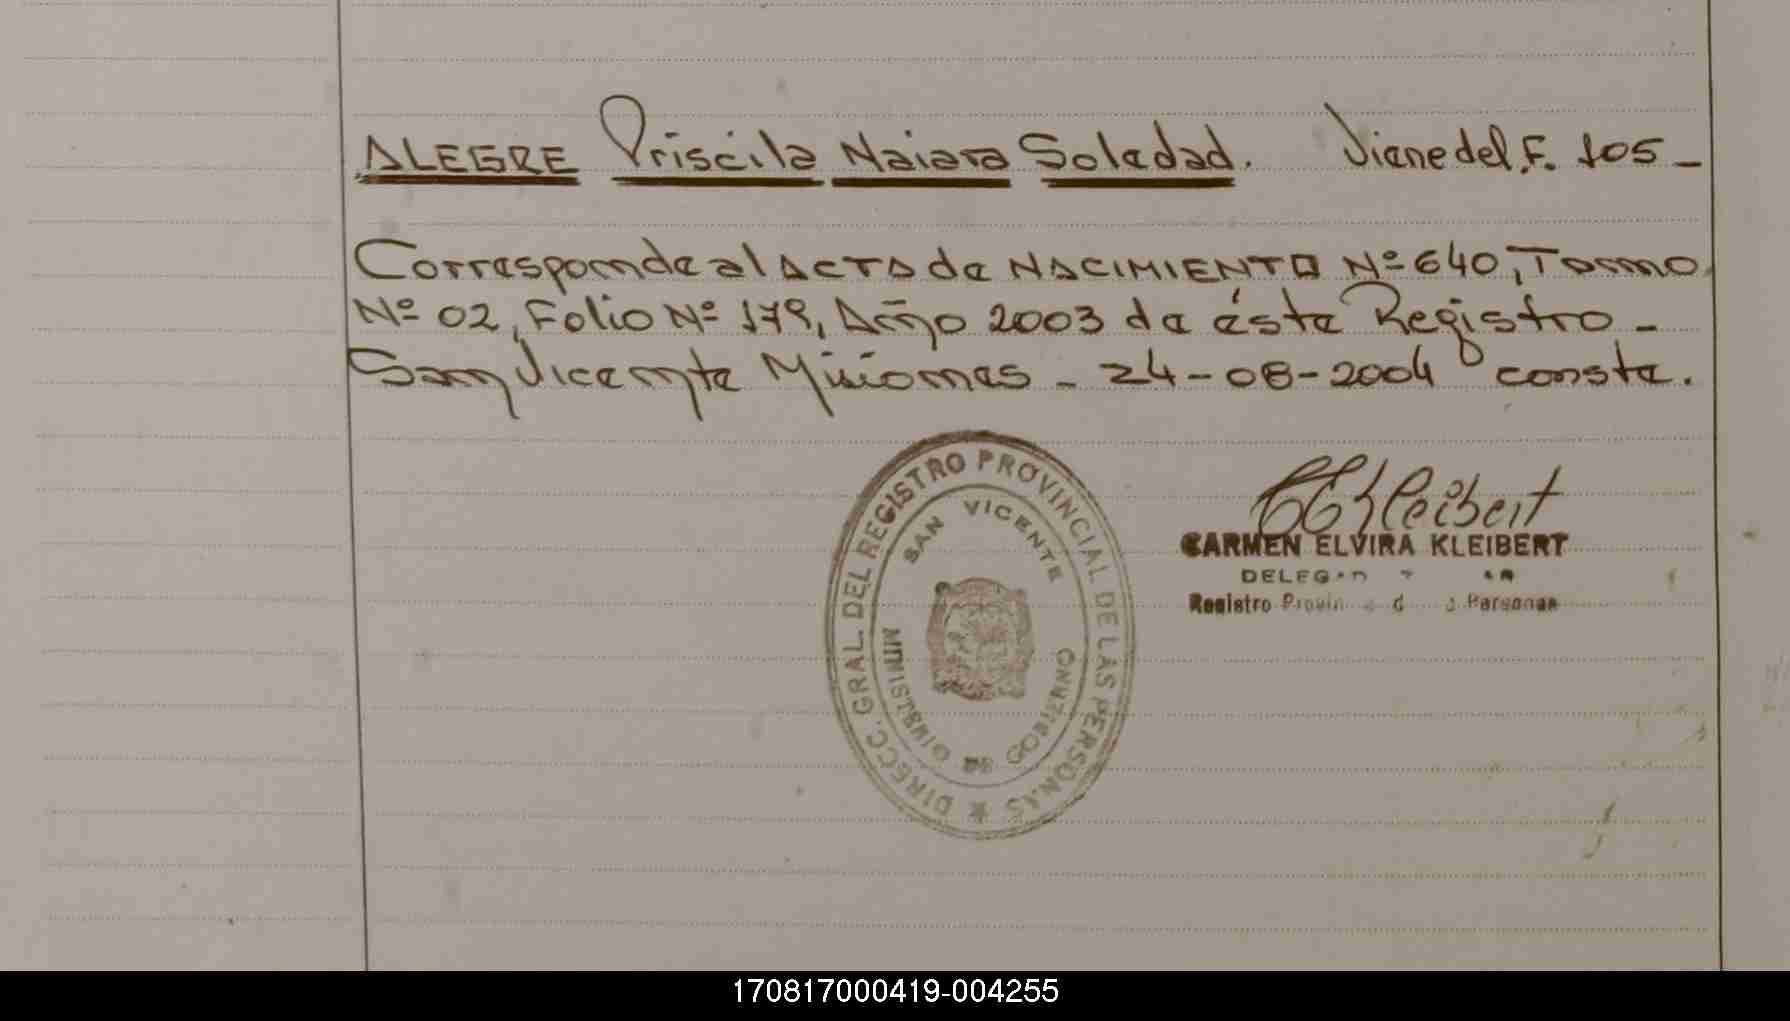 ALEGRE Priscila Naiara Soledad. Viene del F. 105-
Corresponde al ACTA de NACIMIENTO Nº 640, Tomo
Nº 02, Folio Nº 179, Año 2003 de ésta Registro-
San Vicente Misiones - 24-08-2004 consta.
DIRECC. GRAL. DEL REGISTRO PROVINCIAL DE LAS PERSONAS
SAN VICENTE
MINISTERIO DE GOBIERNO
CEKleibert
CARMEN ELVIRA KLEIBERT
Registro Personas
170817000419-004255